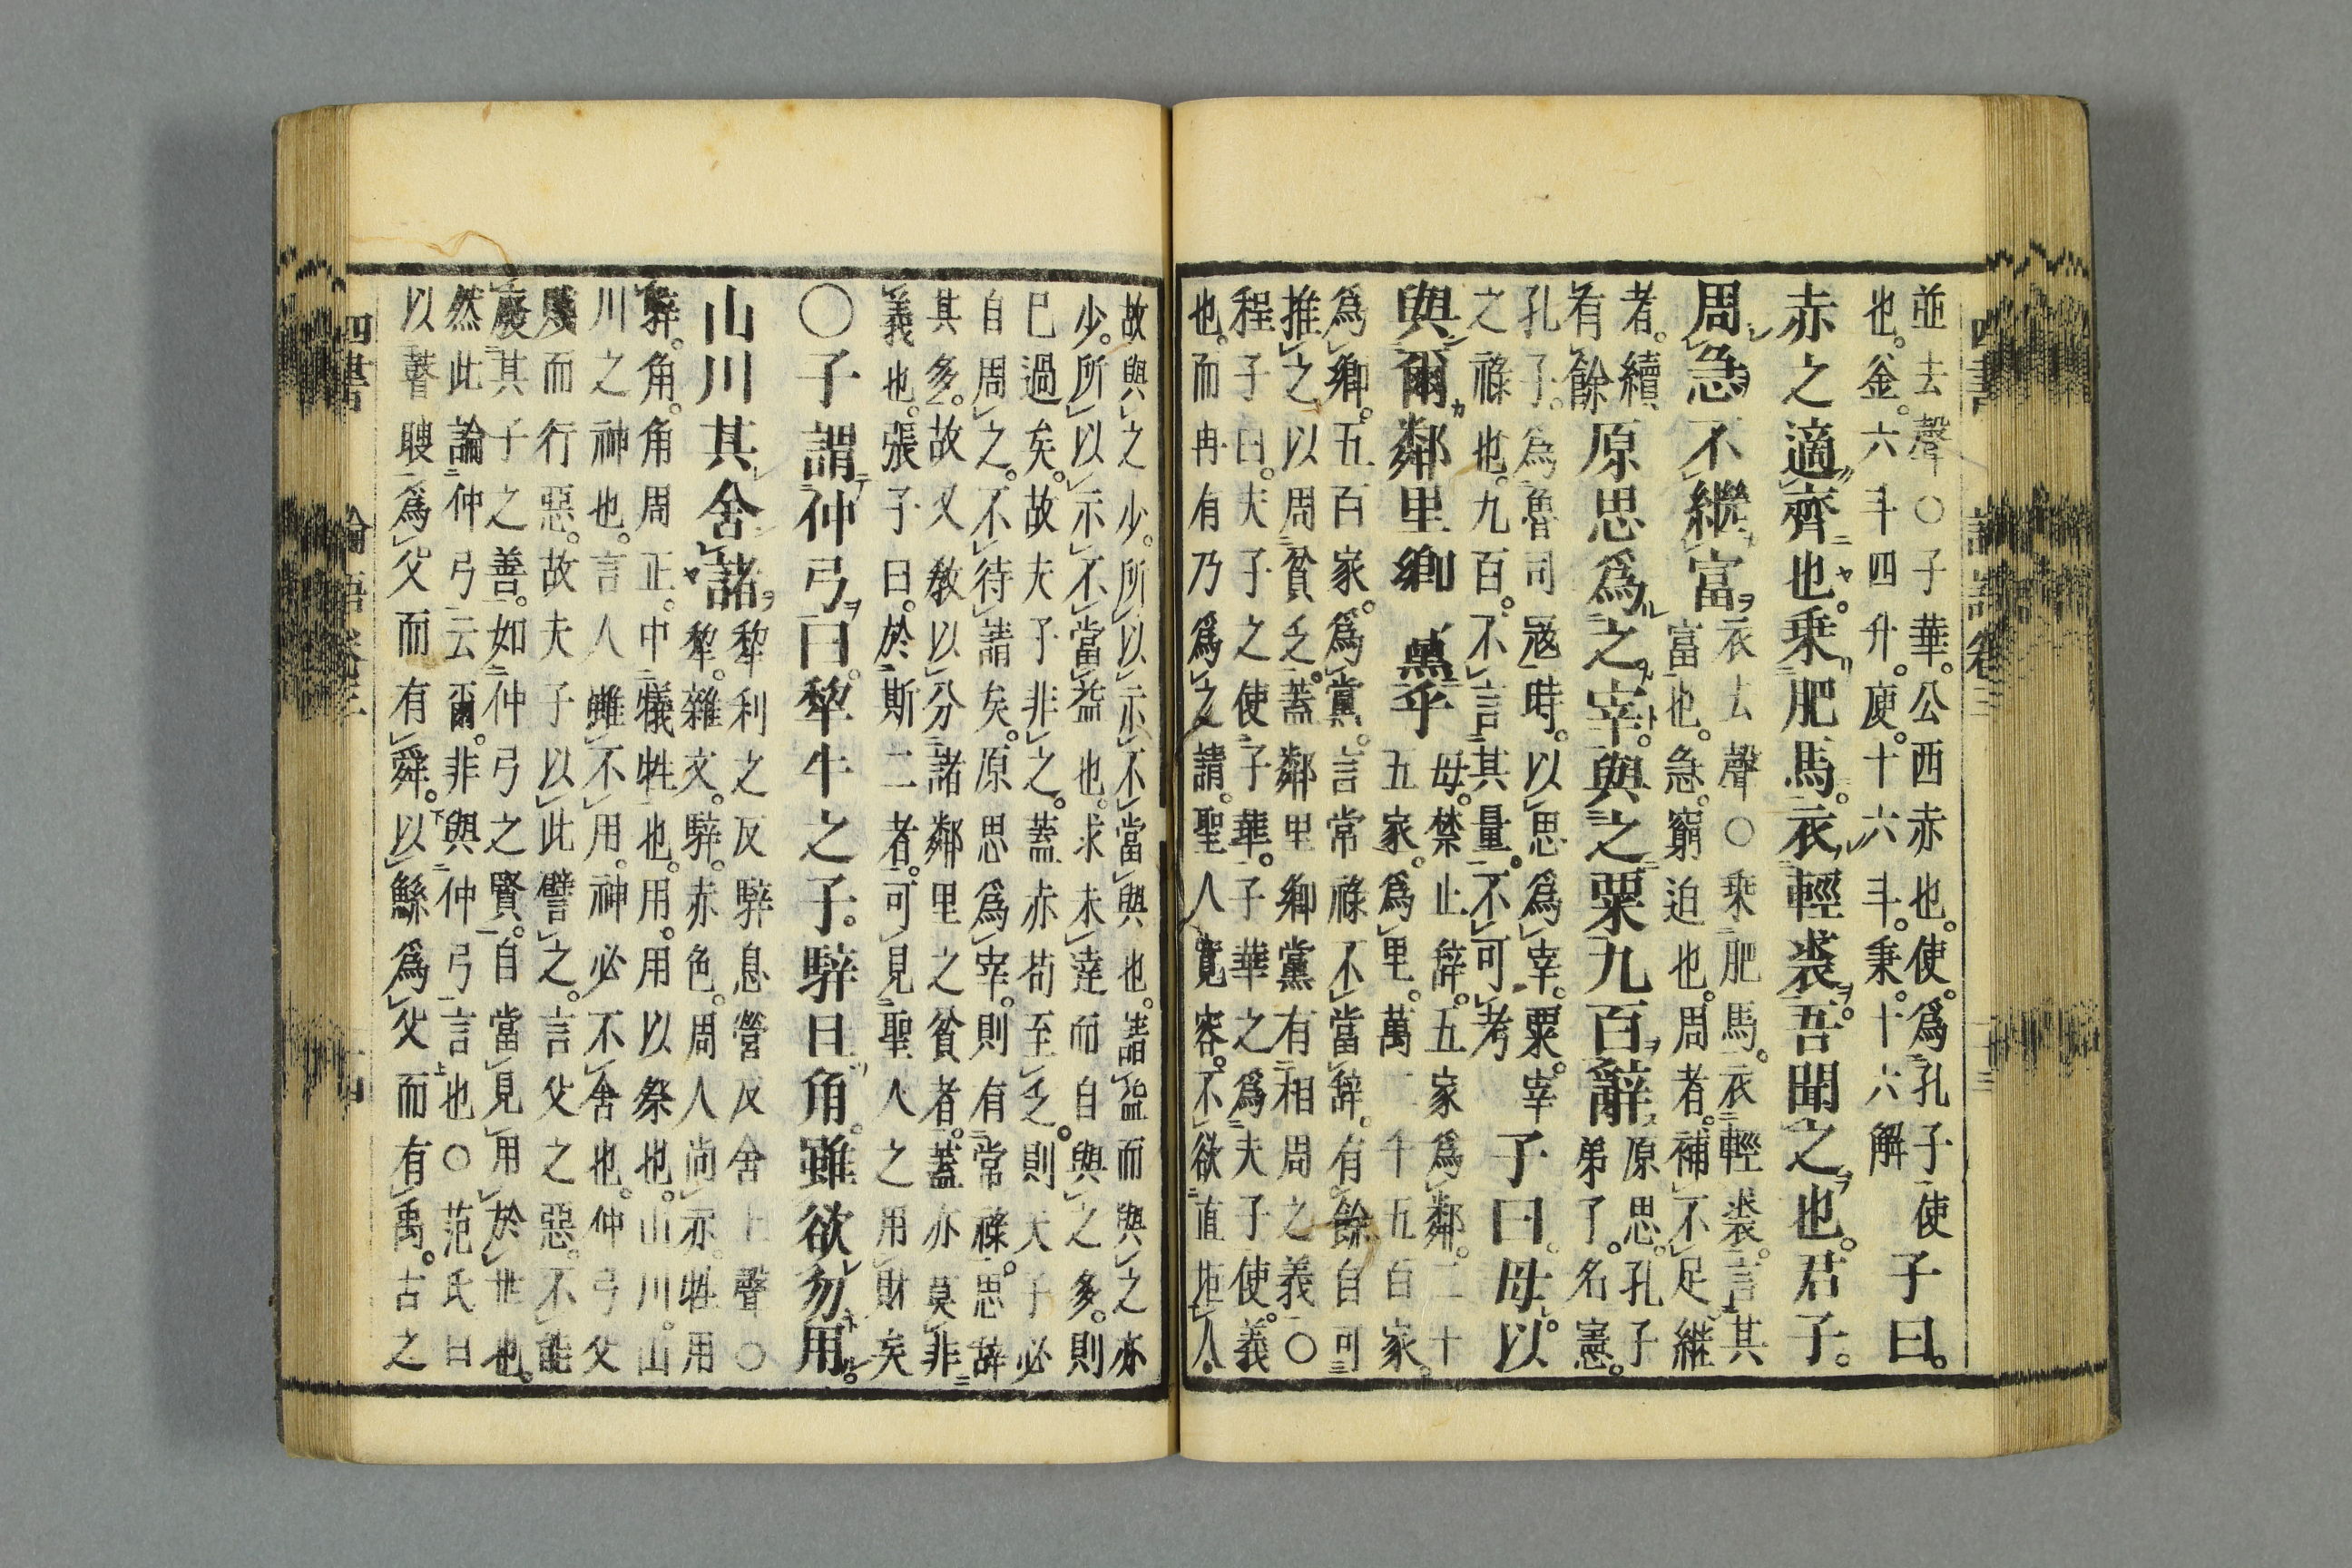 四書 論語卷三 十三
並去聲○子華。公西赤也。使。爲孔子使
也。釜。六斗四升。庾。十六斗。秉。十六斛
子曰。
赤之適齊也。乘肥馬。衣輕裘。吾聞之也。君子。
周急不繼富
衣去聲○乘肥馬。衣輕裘。言其
富也。急。窮迫也。周者。補不足。繼
者。續
有餘
原思爲之宰。與之粟九百辭
原思。孔子
弟子。名憲。
孔子。爲魯司寇時。以思爲宰。粟。宰
之祿也。九百。不言其量。不可考
子曰。毋以
與爾鄰里鄉黨乎
毋。禁止辭。五家爲鄰。二十
五家。爲里。萬二千五百家。
爲鄉。五百家。爲黨。言常祿不當辭。有餘自可
推之以周貧乏。蓋鄰里鄉黨有相周之義○
程子曰。夫子之使子華。子華之爲夫子使。義
也。而冉有乃爲之請。聖人寬容。不欲直拒人。
故與之少。所以示不當與也。請益而與之亦
少。所以示不當益也。求未達而自與之多。則
已過矣。故夫子非之。蓋赤苟至乏。則夫子必
自周之。不待請矣。原思爲宰。則有常祿。思辭
其多。故又敎以分諸鄰里之貧者。蓋亦莫非
義也。張子曰。於斯二者。可見聖人之用財矣
○子謂仲弓曰。犂牛之子。騂且角。雖欲勿用。
山川其舍諸
犂利之反騂息營反舍上聲○
犂。雜文。騂。赤色。周人尚赤。牲用
騂。角。角周正。中犧牲也。用。用以祭也。山川。山
川之神也。言人雖不用。神必不舍也。仲弓父
賤而行惡。故夫子以此譬之。言父之惡。不能
廢其子之善。如仲弓之賢。自當見用於世也。
然此論仲弓云爾。非與仲弓言也○范氏曰
以瞽瞍爲父而有舜。以鯀爲父而有禹。古之
四書 論語卷三 十四